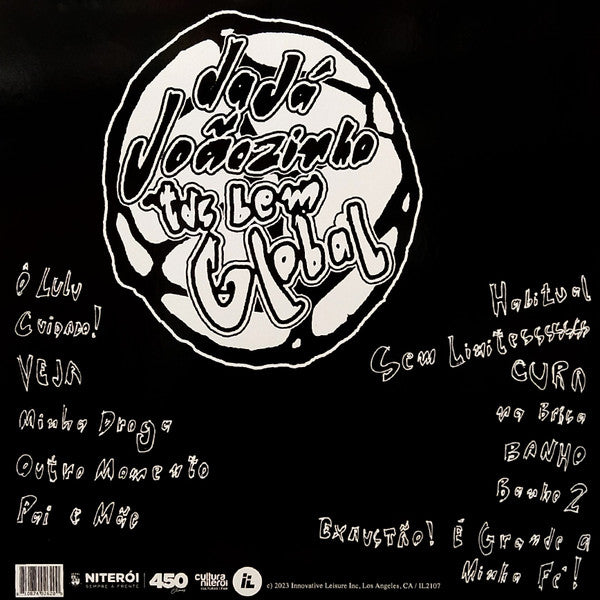 dadá
Joãozinho
tds bem
Global
Ô Lulu
Cuidado!
VEJA
Minha Droga
Outro Momento
Pai e Mãe
Habitual
Sem Limitesssssss
CURA
na Brisa
BANHO
Banho 2
Exaustão! É Grande a
Minha Fé!
NITERÓI
SEMPRE À FRENTE
450
anos
cultura
niterói
iL
c) 2023 Innovative Leisure Inc, Los Angeles, CA / IL2107